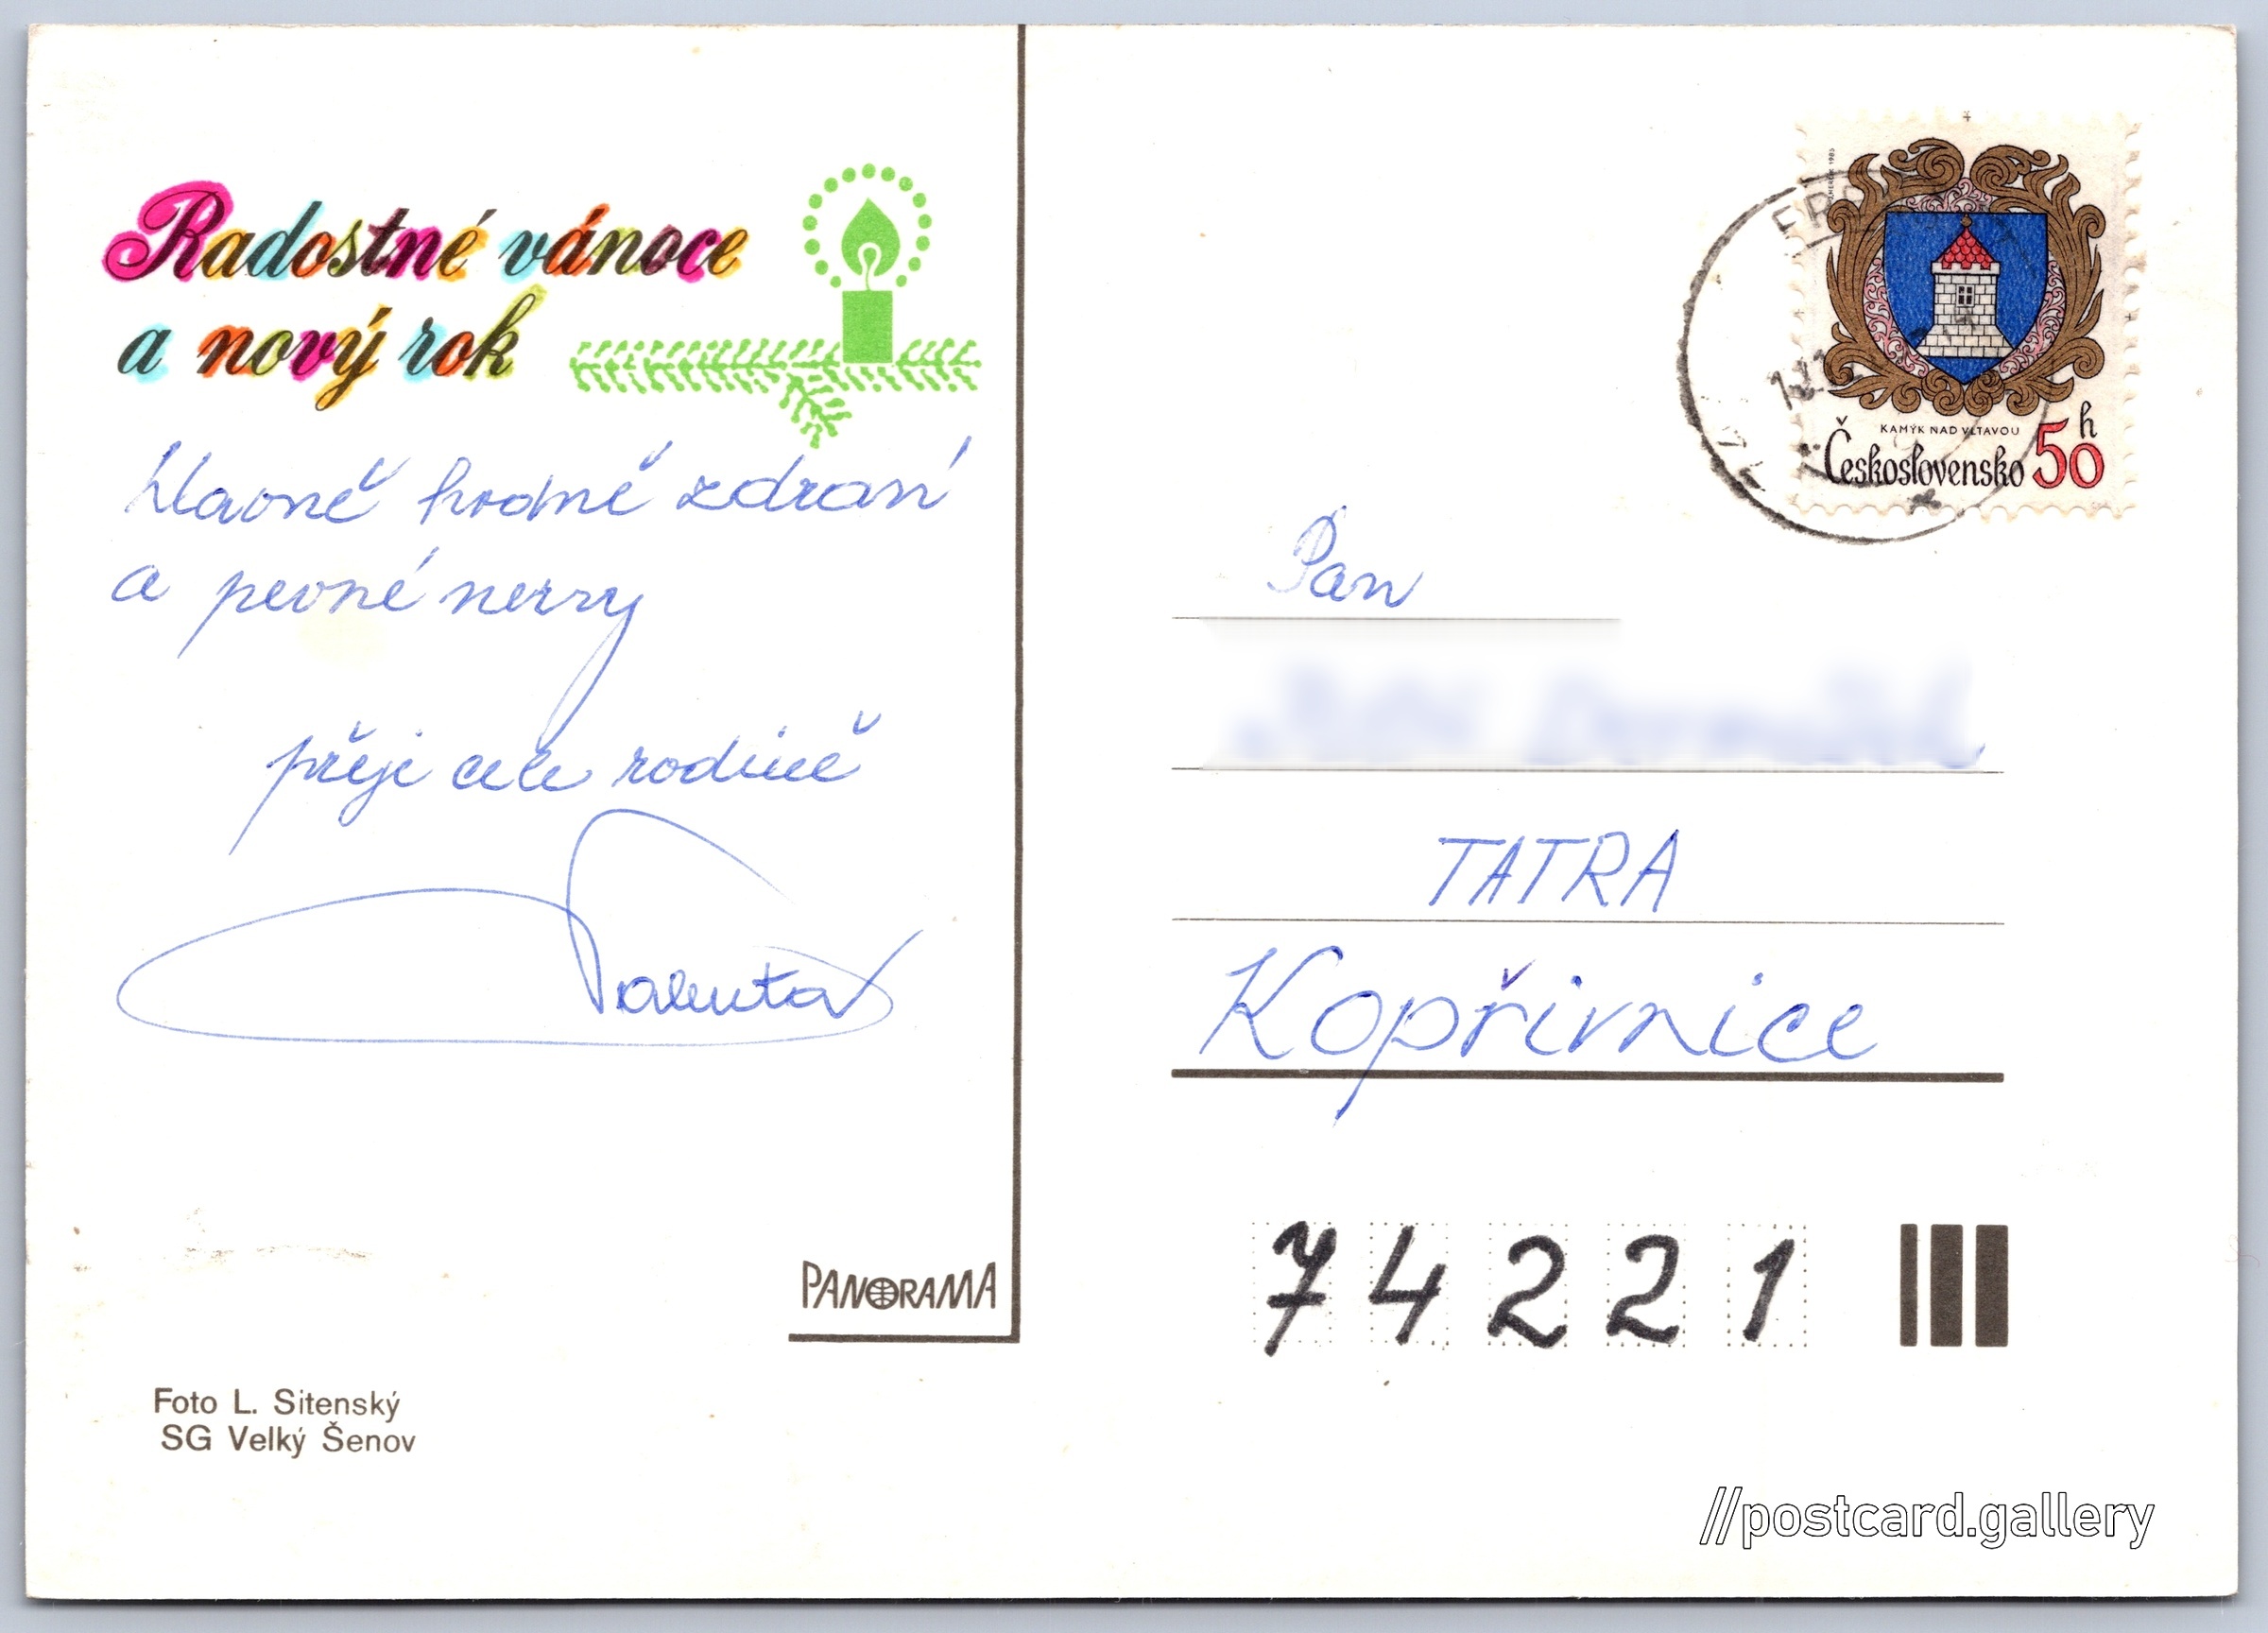 Radostné vánoce
a nový rok
Hlavně hodně zdraví
a pevné nervy
přeji celé rodině
Valenta
PANORAMA
Foto L. Sitenský
SG Velký Šenov
KAMÝK NAD VLTAVOU
Československo 50 h
Pan
TATRA
Kopřivnice
74221
//postcard.gallery